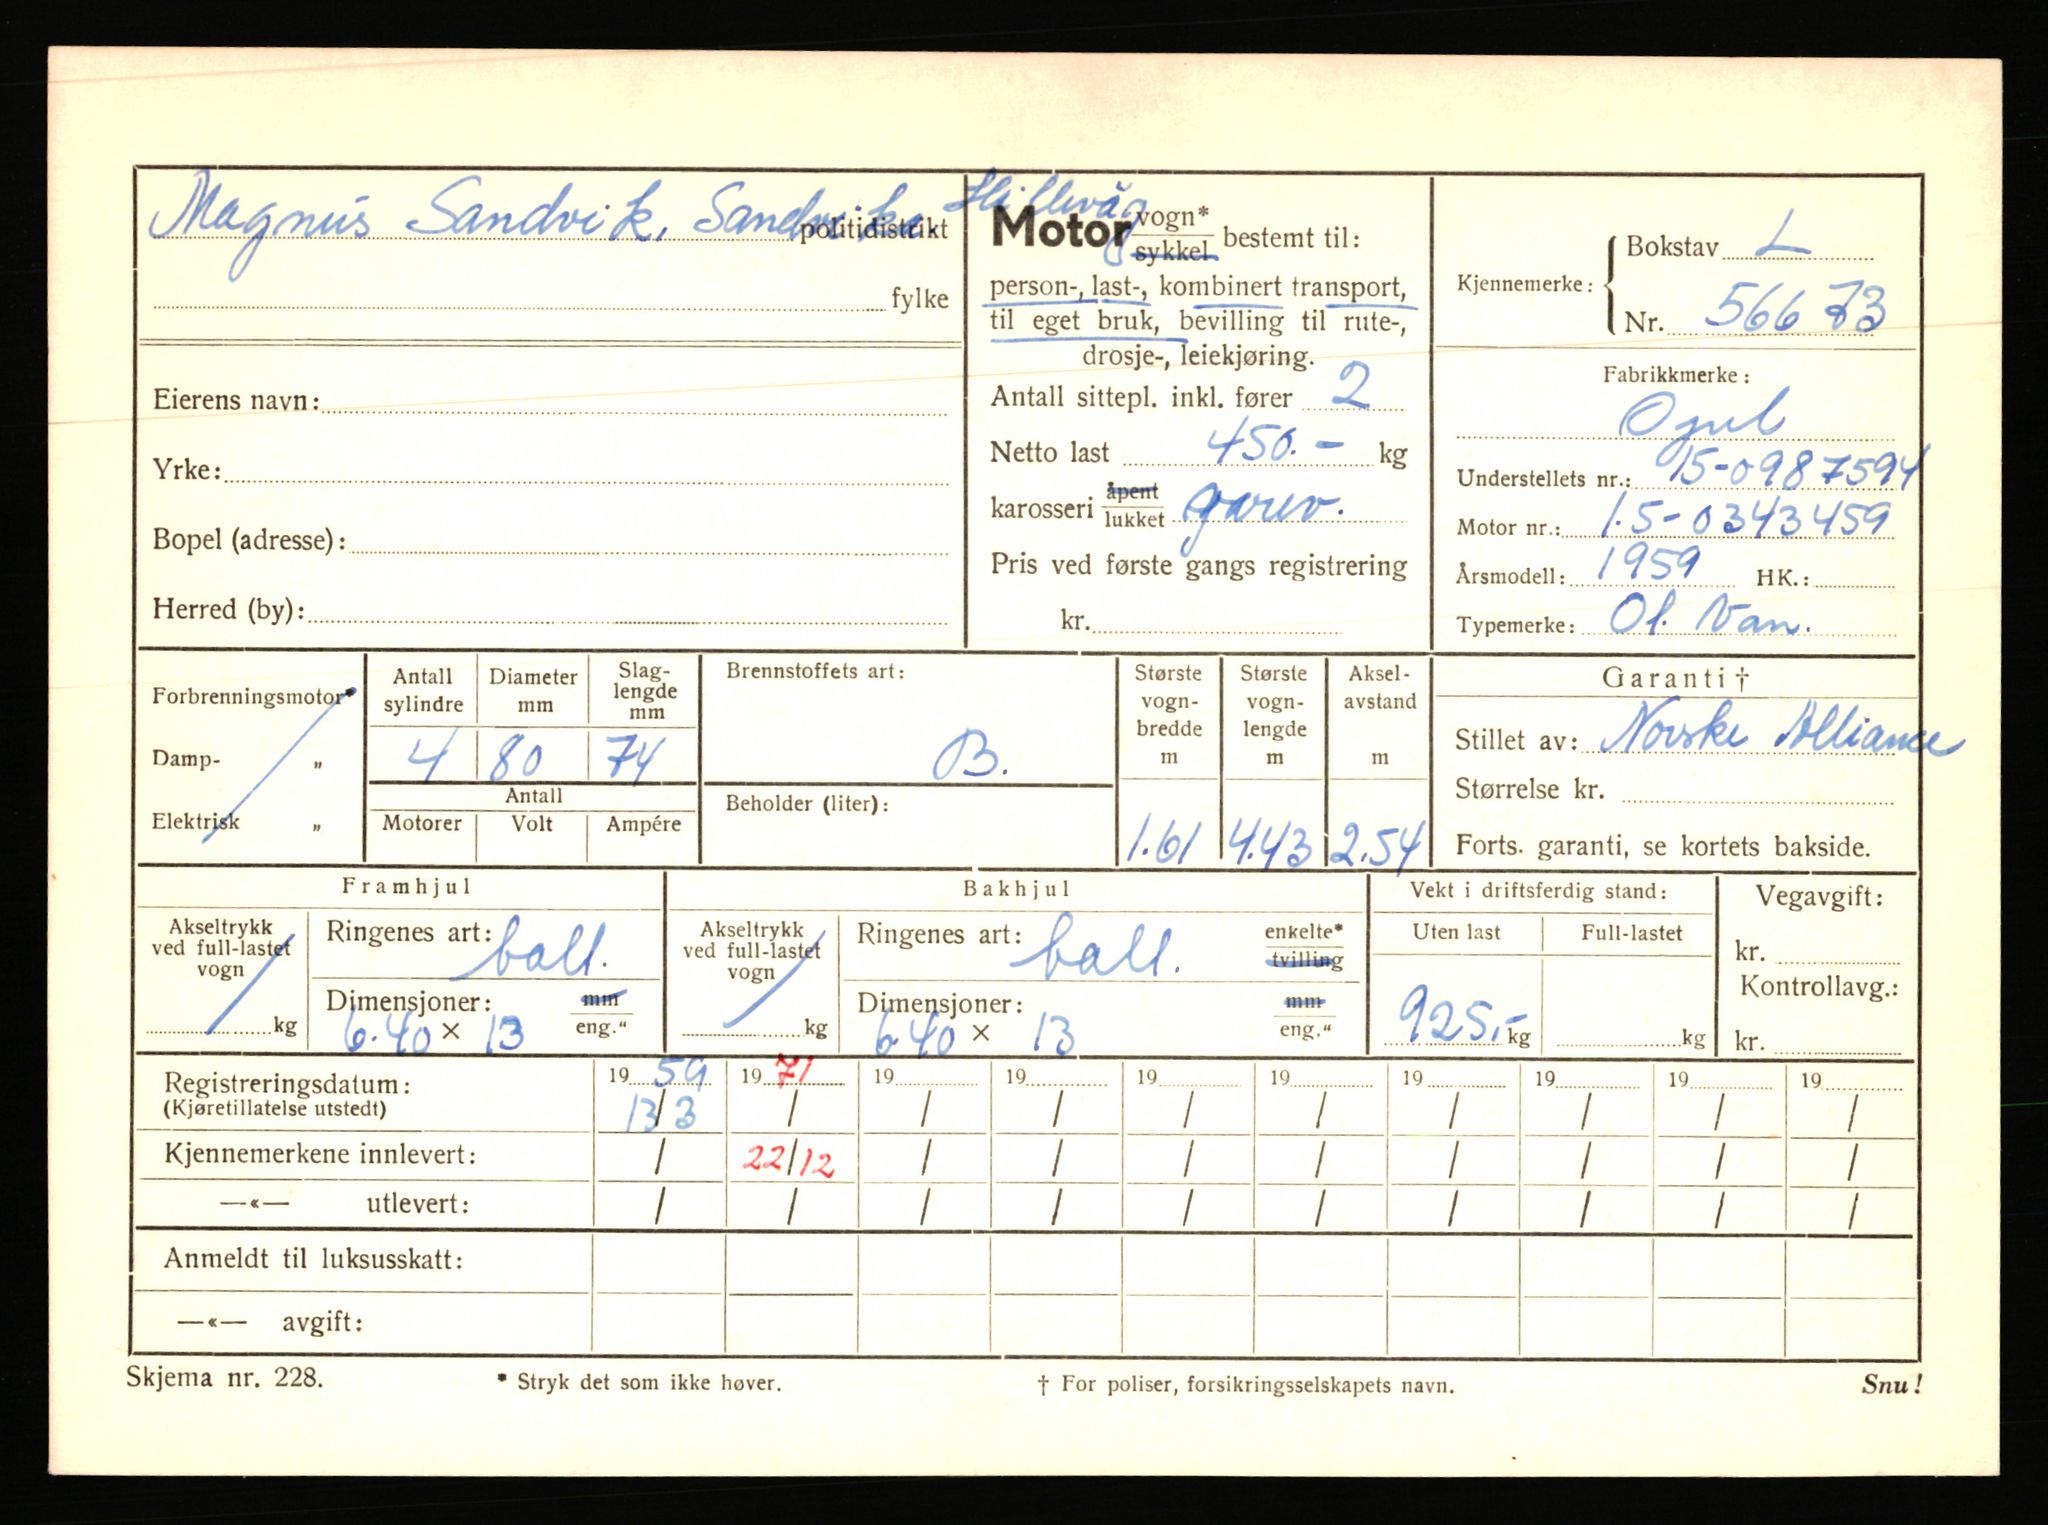 Magnus Sandvik, Sandvika Hillevåg
politidistrikt
fylke
Eierens navn:
Yrke:
Bopel (adresse):
Herred (by):
Motor vogn* sykkel bestemt til:
person-, last-, kombinert transport,
til eget bruk, bevilling til rute-,
drosje-, leiekjøring.
Antall sittepl. inkl. fører 2
Netto last 450.- kg
karosseri åpent lukket varev.
Pris ved første gangs registrering
kr.
Kjennemerke: Bokstav L
Nr. 56673
Fabrikkmerke:
Opel
Understellets nr.: 15-0987594
Motor nr.: 1.5-0343459
Årsmodell: 1959 HK.:
Typemerke: Ol. Van.
Forbrenningsmotor*
Damp- „
Elektrisk „
Antall sylindre
Diameter mm
Slag-lengde mm
4 80 74
Antall
Motorer Volt Ampére
Brennstoffets art:
B.
Beholder (liter):
Største vogn-bredde m
1.61
Største vogn-lengde m
4.43
Aksel-avstand m
2.54
Garanti †
Stillet av: Norske Alliance
Størrelse kr.
Forts. garanti, se kortets bakside.
Framhjul
Akseltrykk
ved full-lastet
vogn
kg
Ringenes art: ball.
Dimensjoner: mm
6.40 × 13 eng."
Bakhjul
Akseltrykk
ved full-lastet
vogn
kg
Ringenes art: ball. enkelte* tvilling
Dimensjoner: mm
6.40 × 13 eng."
Vekt i driftsferdig stand:
Uten last Full-lastet
925,- kg kg
Vegavgift:
kr.
Kontrollavg.:
kr.
Registreringsdatum: 19 59 19 71 19 19 19 19 19 19 19 19
(Kjøretillatelse utstedt) 13/3 / / / / / / / / /
Kjennemerkene innlevert: / 22/12 / / / / / / / /
—«— utlevert: / / / / / / / / / /
Anmeldt til luksusskatt:
—«— avgift:
Skjema nr. 228.
* Stryk det som ikke høver.
† For poliser, forsikringsselskapets navn.
Snu!